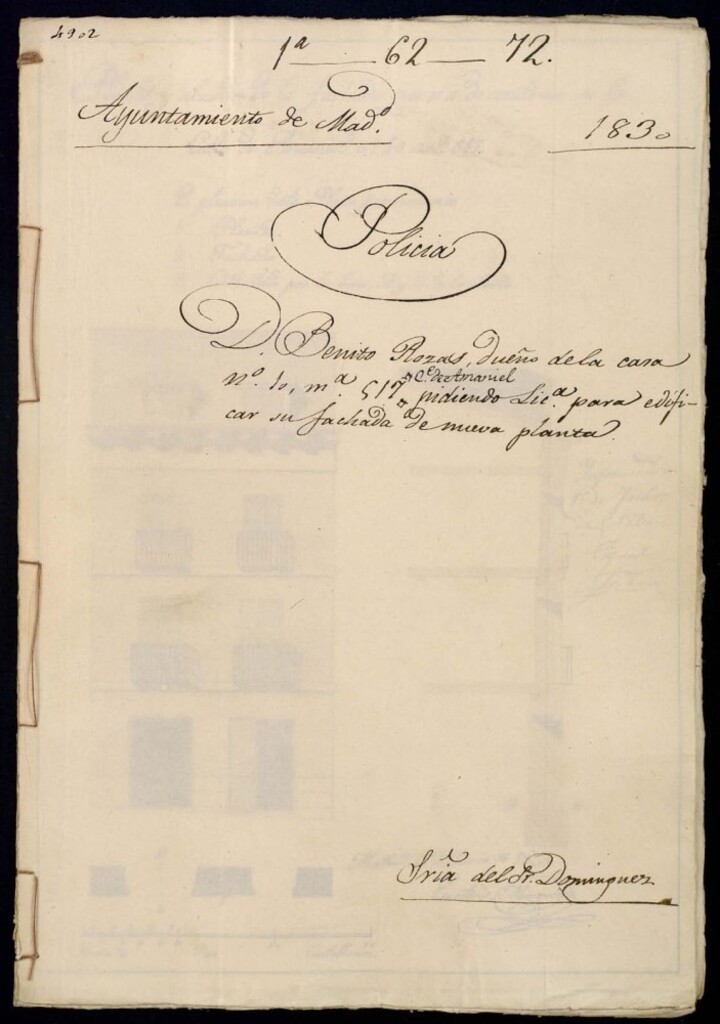 4902
1ª 62 72.
Ayuntamiento de Madᵈ.
1830
Policia
D. Benito Rozas, dueño de la casa
C.ᵉ de Amaniel
nº. 10, mª. 517 pidiendo Licª. para edifi-
car su fachada de nueva planta.
Sria del Sr. Dominguez